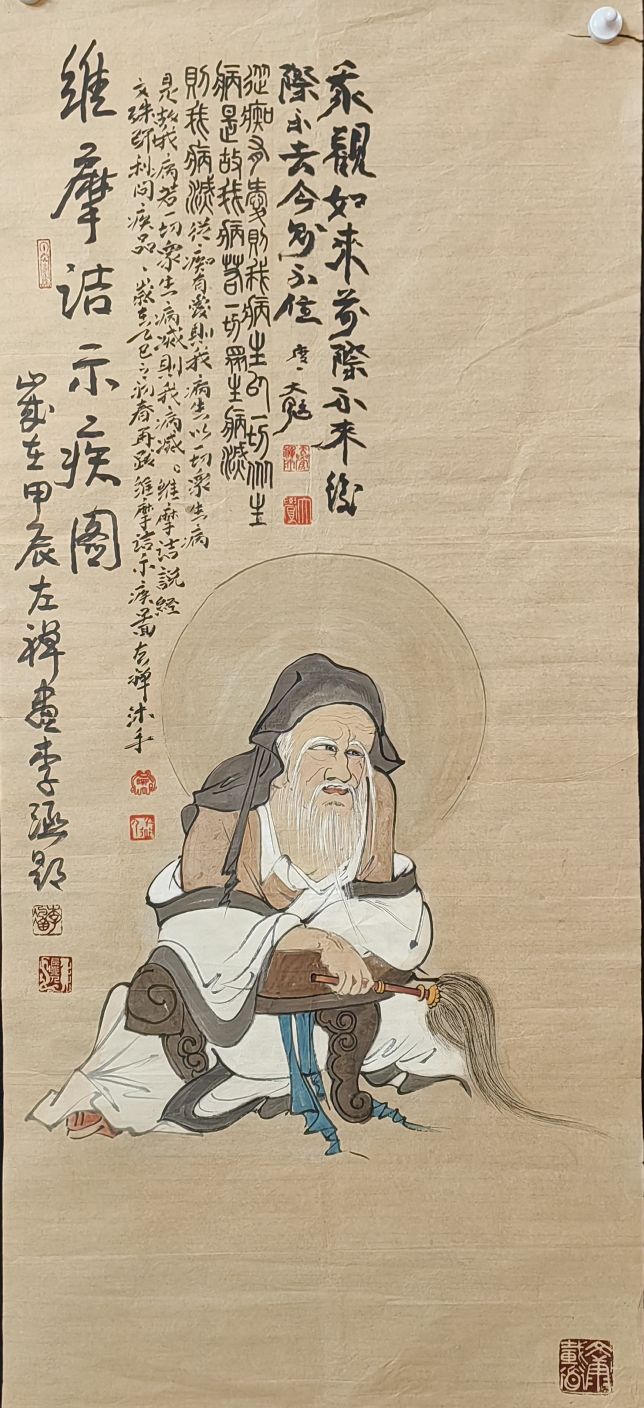 我觀如來前際不来後
際不去今則不住
從痴有愛則我病生以一切眾生
病是故我病若一切眾生病滅
則我病滅從痴有愛則我病生以一切眾生病
是故我病若一切眾生病滅則我病滅。維摩詰說經
文殊師利問疾品、歲在乙巳之初春再跋維摩詰示疾圖左禪沐手
維摩詰示疾圖
歲在甲辰左禪畫李涵題